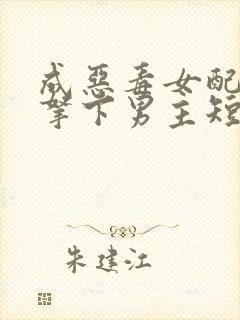 成恶毒女配
拿下男主短
朱建江